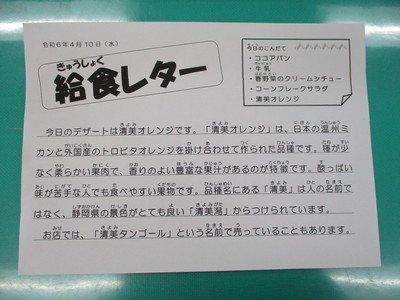 令和6年4月10日（水）
きゅうしょく
給食レター
今日のこんだて
・ココアパン
・牛乳
・春野菜のクリームシチュー
・コーンフレークサラダ
・清美オレンジ
今日のデザートは清美オレンジです。「清美オレンジ」は、日本の温州ミ
カンと外国産のトロビタオレンジを掛け合わせて作られた品種です。種が少
なく柔らかい果肉で、香りのよい豊富な果汁があるのが特徴です。酸っぱい
味が苦手な人でも食べやすい果物です。品種名にある「清美」は人の名前で
はなく、静岡県の景色がとても良い「清美潟」からつけられています。
お店では、「清美タンゴール」という名前で売っていることもあります。